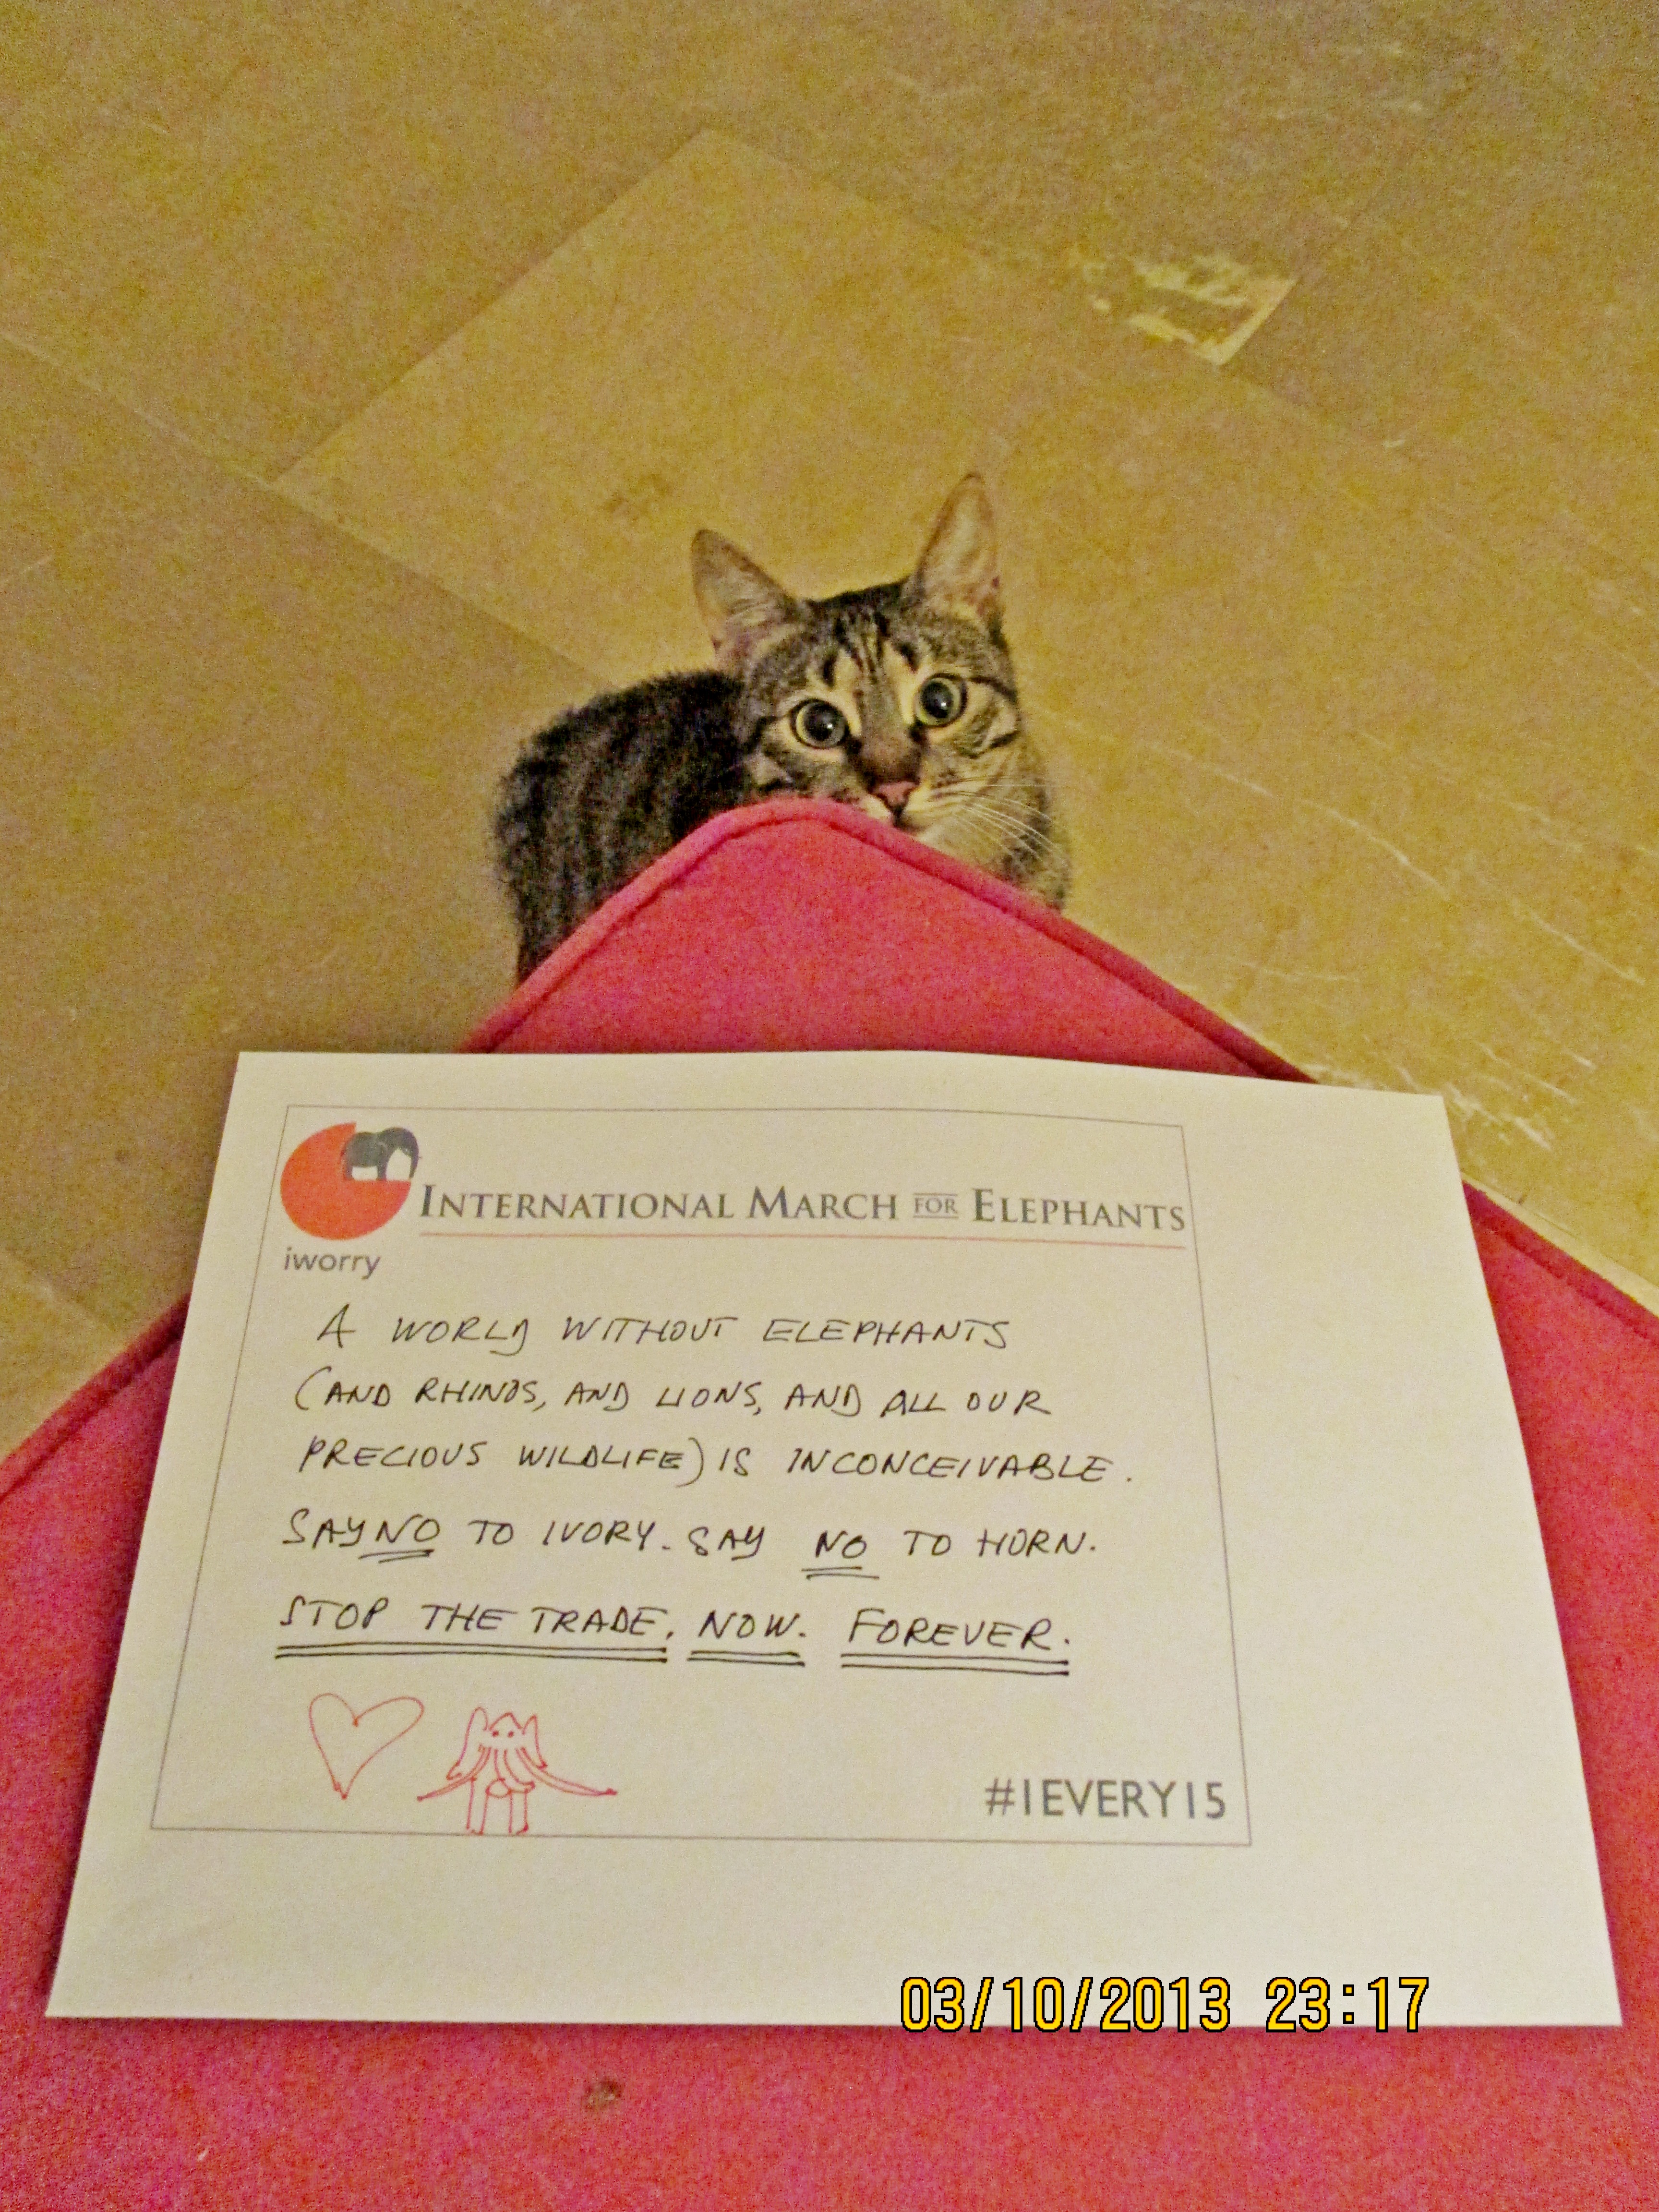 INTERNATIONAL MARCH FOR ELEPHANTS
iworry
A WORLD WITHOUT ELEPHANTS
(AND RHINOS, AND LIONS, AND ALL OUR
PRECIOUS WILDLIFE) IS INCONCEIVABLE.
SAY NO TO IVORY. SAY NO TO HORN.
STOP THE TRADE. NOW. FOREVER.
#1EVERY15
03/10/2013 23:17